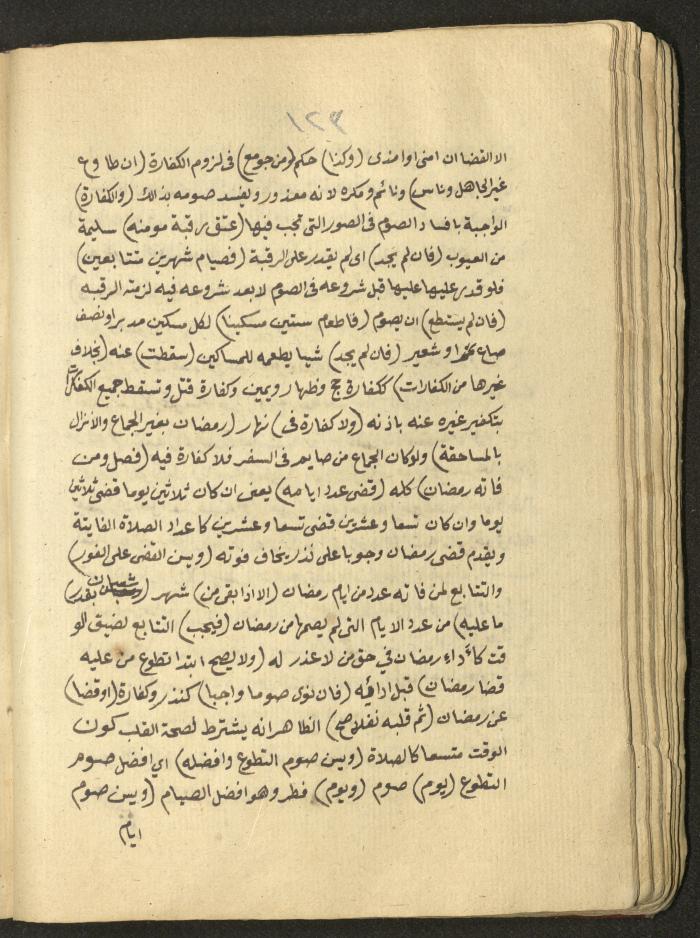 ١٢٣
الا القضا ان امنى او امذى (وكذا) حكم (من جومع) فى لزوم الكفارة (ان طاوع
غير الجاهل وناس) ونائم ومكره لانه معذور ويفسد صومه بذلك (والكفارة)
الواجبة بافساد الصوم فى الصور التى تجب فيها (عتق رقبة مومنه) سليمة
من العيوب (فان لم يجد) اى لم يقدر على الرقبة (فصيام شهرين متتابعين)
فلو قدر عليها عليها قبل شروعه فى الصوم لا بعد شروعه فيه لزمته الرقبه
(فان لم يستطع) ان يصوم (فاطعام ستين مسكينا) لكل مسكين مد بر او نصف
صاع تمر او شعير (فان لم يجد) شيا يطعمه للمساكين (سقطت) عنه (بخلاف
غيرها من الكفارات) ككفارة حج وظهار ويمين وكفارة قتل وتسقط جميع الكفارات
بتكفير غيره عنه باذنه (ولا كفارة فى) نهار (رمضان بغير الجماع والانزال
بالمساحقة) ولو كان الجماع من صايم فى السفر فلا كفارة فيه (فصل ومن
فاته رمضان) كله (قضى عدد ايامه) يعنى ان كان ثلاثين يوما قضى ثلاثين
يوما وان كان تسعا وعشرين قضى تسعا وعشرين كاعداد الصلاة الفايتة
ويقدم قضى رمضان وجوبا على نذر يخاف فوته (ويسن القضى على الفور)
والتتابع لمن فاته عدد من ايام رمضان (الا اذا بقى من) شهر (شعبان بقدر
ما عليه) من عدد الايام التى لم يصمها من رمضان (فيجب) التتابع لضيق الو
قت كأداء رمضان في حق من لا عذر له (ولا يصح ابتدا تطوع من عليه
قضا رمضان) قبل ادائيه (فان نوى صوما واجبا) كنذر وكفارة (او قضا)
عن رمضان (ثم قلبه نفلا صح) الظاهر انه يشترط لصحة القلب كون
الوقت متسعا كالصلاة (ويسن صوم التطوع وافضله) اي افضل صوم
التطوع (يوم) صوم (ويوم) فطر وهو افضل الصيام (ويسن صوم
ايام